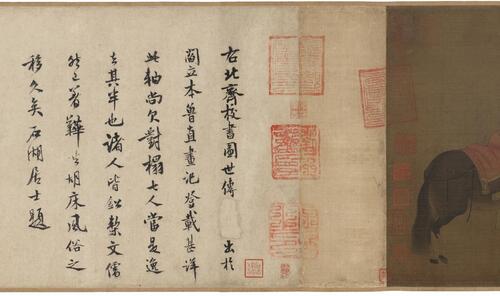 右北齊校書圖世傳　出於
閻立本魯直畫記登載甚詳
此軸尚欠對榻七人當是逸
去其半也諸人皆鉛槧文儒
然已著鞾坐胡床風俗之
移久矣石湖居士題